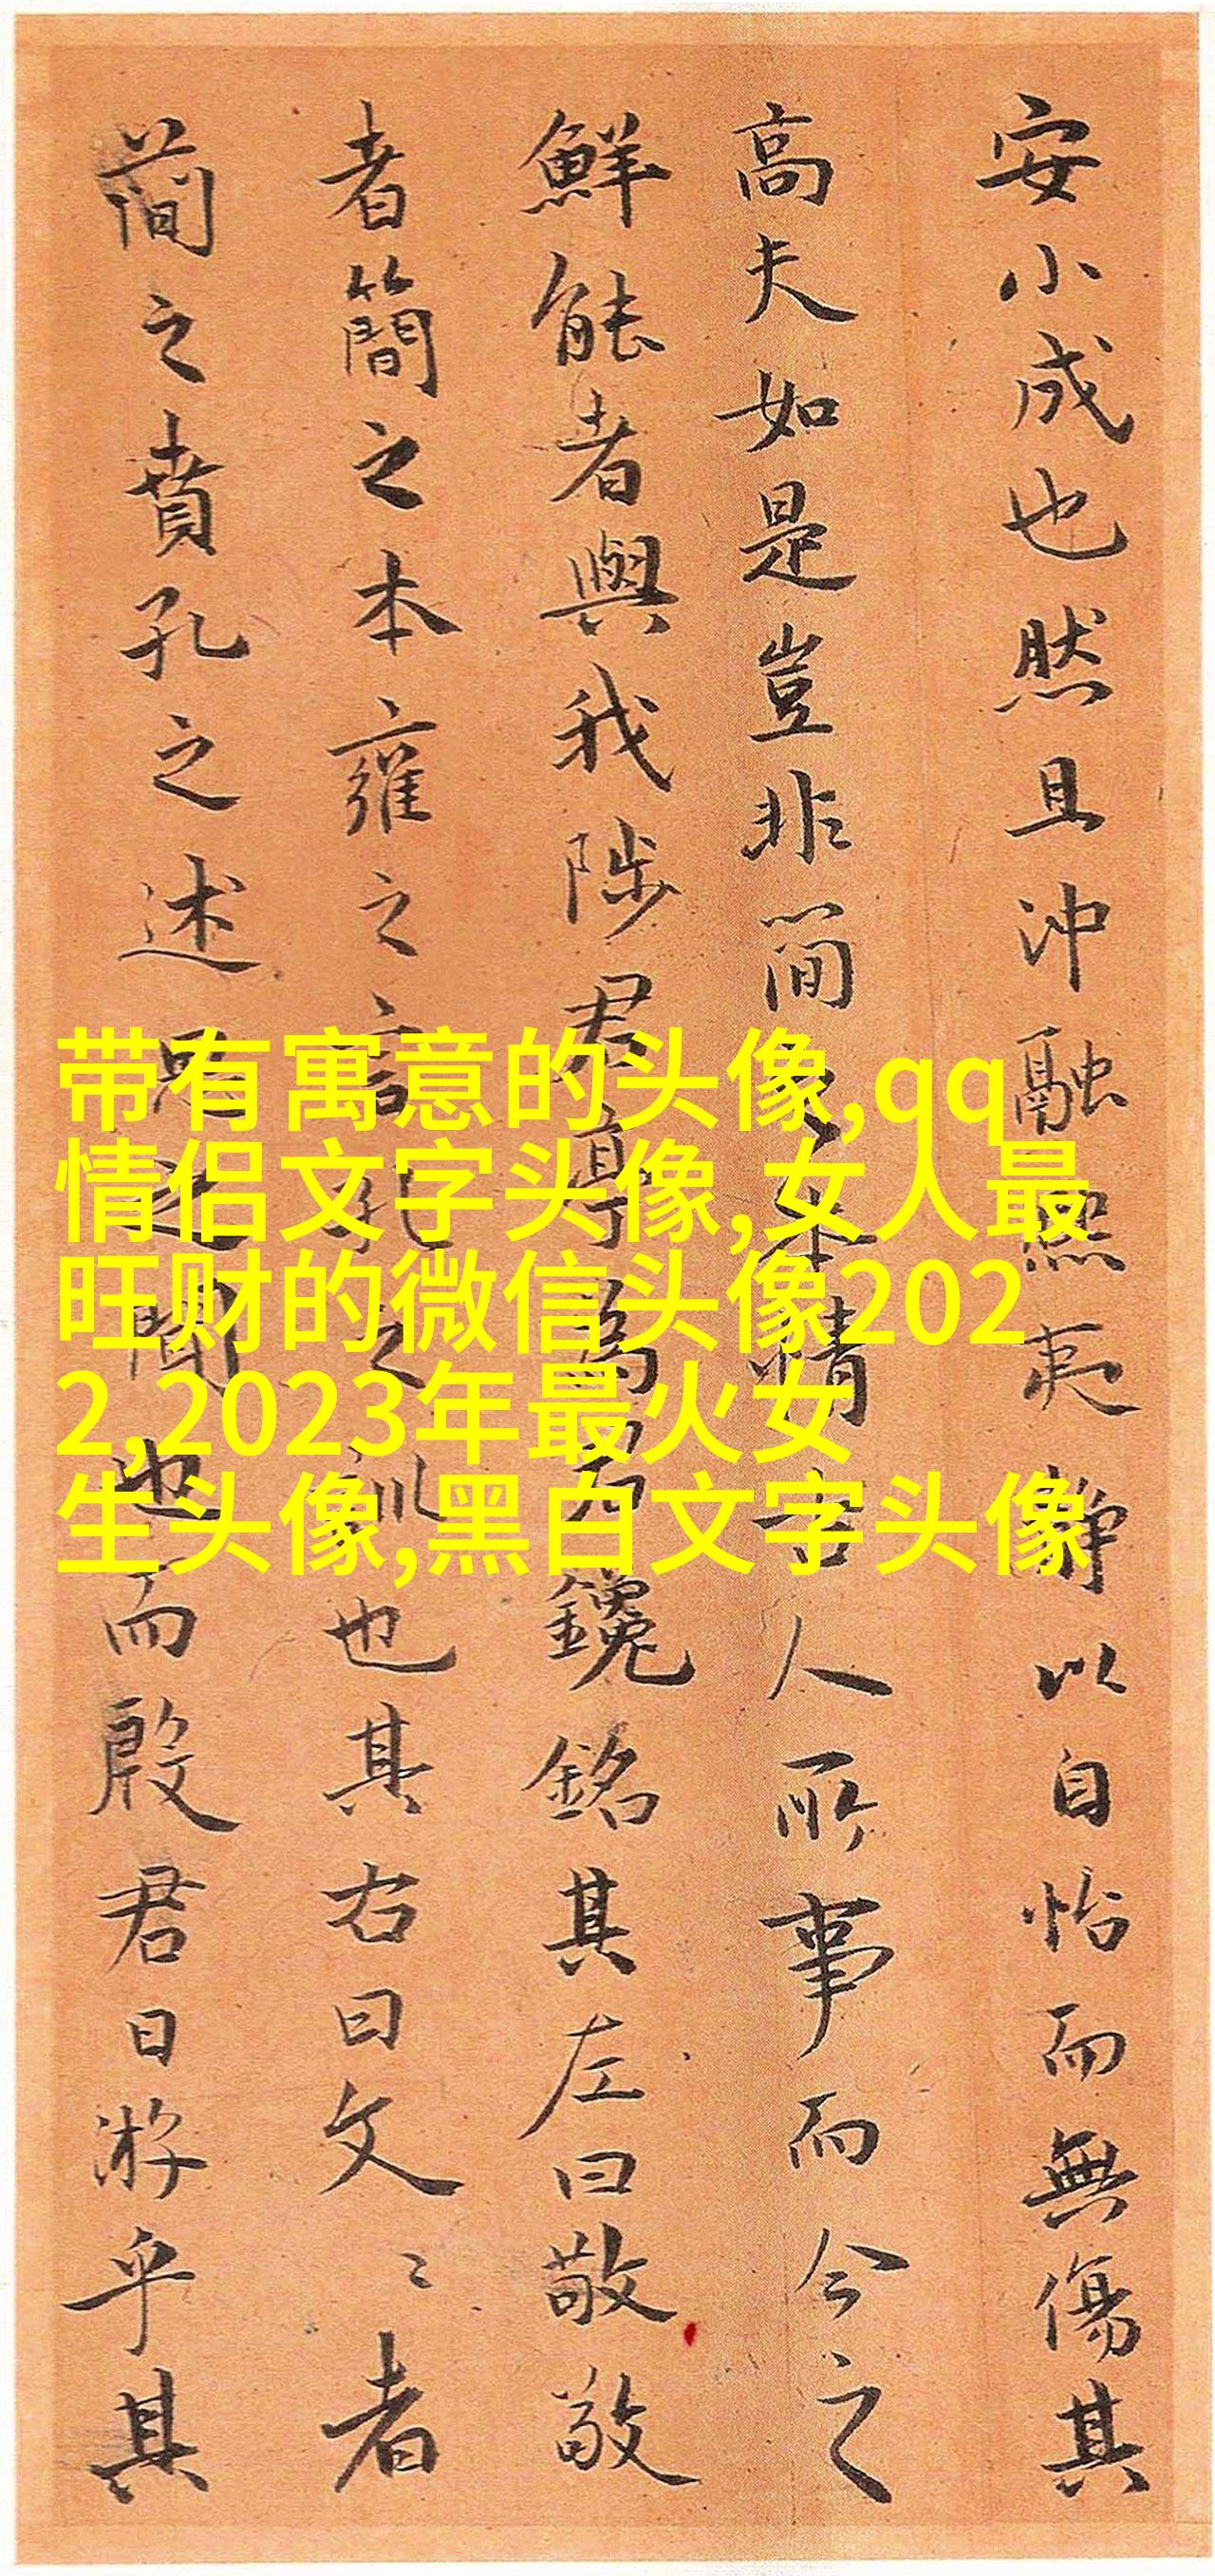 安小成也然且冲融熙夷静以自怡而無傷其
高夫如是豈非簡之本精古人所事而今之
鮮能者與我陟君尋為右鑱銘其左曰敬敬
者簡之本雍之言孔之訓也其右曰文〻者
簡之賁孔之述思之聞也而殿君日游乎其
带有寓意的头像,qq
情侣文字头像,女人最
旺财的微信头像202
2,2023年最火女
生头像,黑白文字头像